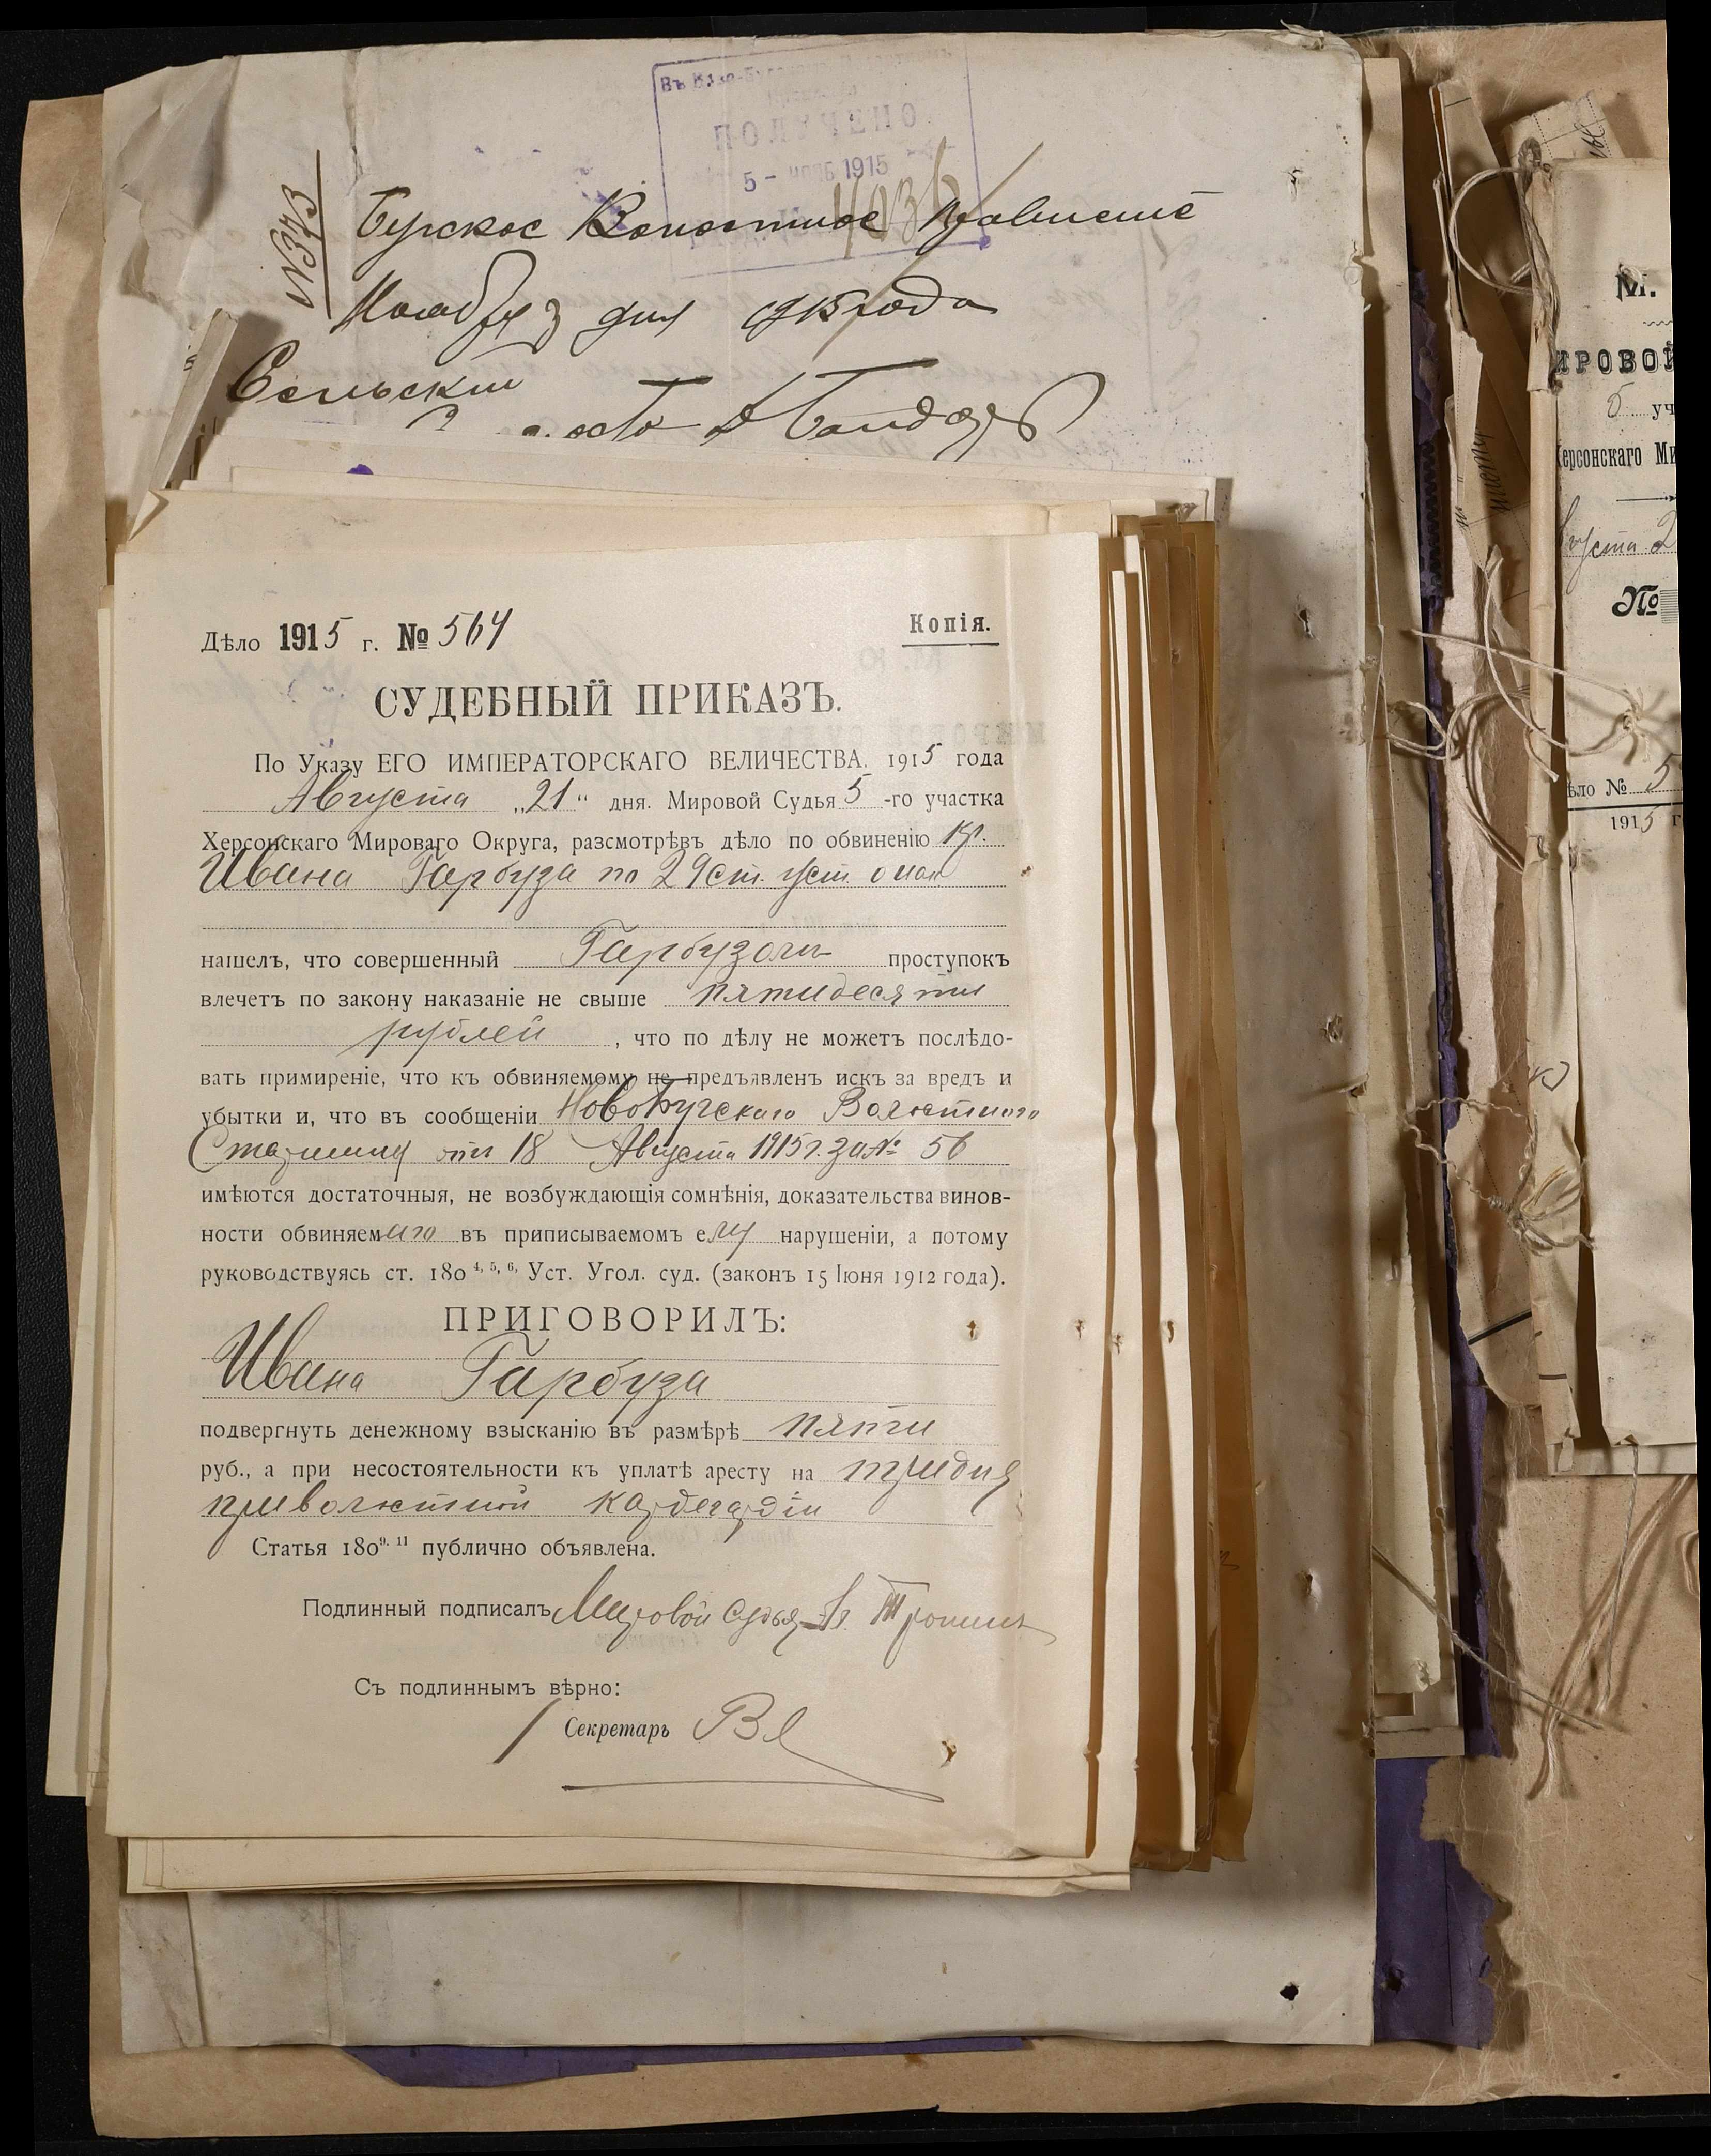 Въ
ПОЛУЧЕНО
5 - НОЯБ 1915
№373
Бугское Волостное Правленіе
Ноября 3 дня 1915 года
Сельскій
Дѣло 1915 г. № 564
Копія.
СУДЕБНЫЙ ПРИКАЗЪ.
По Указу ЕГО ИМПЕРАТОРСКАГО ВЕЛИЧЕСТВА. 1915 года
Августа „21“ дня. Мировой Судья 5-го участка
Херсонскаго Мироваго Округа, разсмотрѣвъ дѣло по обвиненію кр.
Ивана Гарбуза по 29 ст. уст. о нак
нашелъ, что совершенный Гарбузомъ проступокъ
влечетъ по закону наказаніе не свыше пятидесяти
рублей, что по дѣлу не можетъ послѣдо-
вать примиреніе, что къ обвиняемому не предъявленъ искъ за вредъ и
убытки и, что въ сообщеніи НовоБугскаго Волостного
Старшины отъ 18 Августа 1915 г. за № 56
имѣются достаточныя, не возбуждающія сомнѣнія, доказательства винов-
ности обвиняемаго въ приписываемомъ ему нарушеніи, а потому
руководствуясь ст. 180 4, 5, 6, Уст. Угол. суд. (законъ 15 Іюня 1912 года).
ПРИГОВОРИЛЪ:
Ивана Гарбуза
подвергнуть денежному взысканію въ размѣрѣ пяти
руб., а при несостоятельности къ уплатѣ аресту на три дня
при волостной кардегардіи
Статья 180 9. 11 публично объявлена.
Подлинный подписалъ Мировой Судья
Съ подлиннымъ вѣрно:
Секретарь
М.
ИРОВОЙ
уч
Херсонскаго Ми
вгуста 2
№
ѣло № 5
1915 г